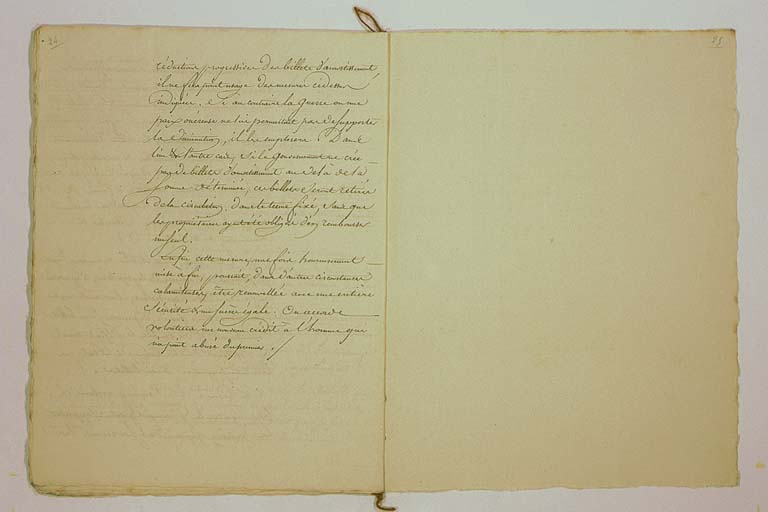 24
85
réduction progressive des billets d'amortissement,
il ne fera point usage des mesures ci dessus
indiquées, et si au contraire la guerre ou une
paix onéreuse ne lui permettait pas de supporter
la diminution, il les emploiera. Dans
l'un & l'autre cas, si le Gouvernement ne crée
pas de billets d'amortissement au delà de la
somme déterminée, ces billets seront retirés
de la circulation, dans le terme fixé, sans que
les propriétaires ayent été obligés d'en rembourser
un seul.
Enfin, cette mesure, une fois heureusement
mise à fin, pourrait, dans d'autres circonstances
calamiteuses, être renouvellée avec une entière
sécurité & un succès égal. On accorde
volontiers un nouveau crédit à l'homme qui
n'a point abusé du premier.